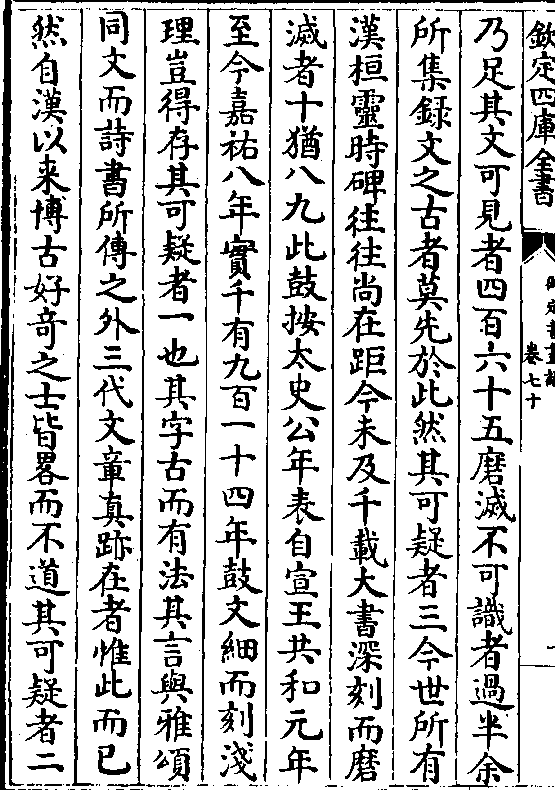 欽定四庫全書
卷七十
乃足其文可見者四百六十五磨滅不可識者過半余
所集錄文之古者莫先於此然其可疑者三今世所有
漢桓靈時碑往往尚在距今未及千載大書深刻而磨
滅者十猶八九此鼓按太史公年表自宣王共和元年
至今嘉祐八年實千有九百一十四年鼓文細而刻淺
理豈得存其可疑者一也其字古而有法其言與雅頌
同文而詩書所傳之外三代文章真跡在者惟此而已
然自漢以来博古好奇之士皆畧而不道其可疑者二